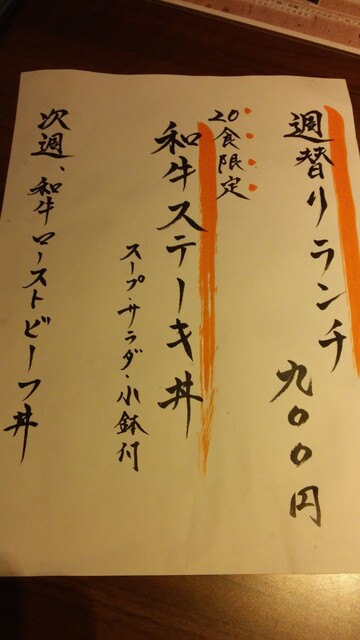 週替りランチ
九〇〇円
20食限定
和牛ステーキ丼
スープ・サラダ・小鉢付
次週、和牛ローストビーフ丼